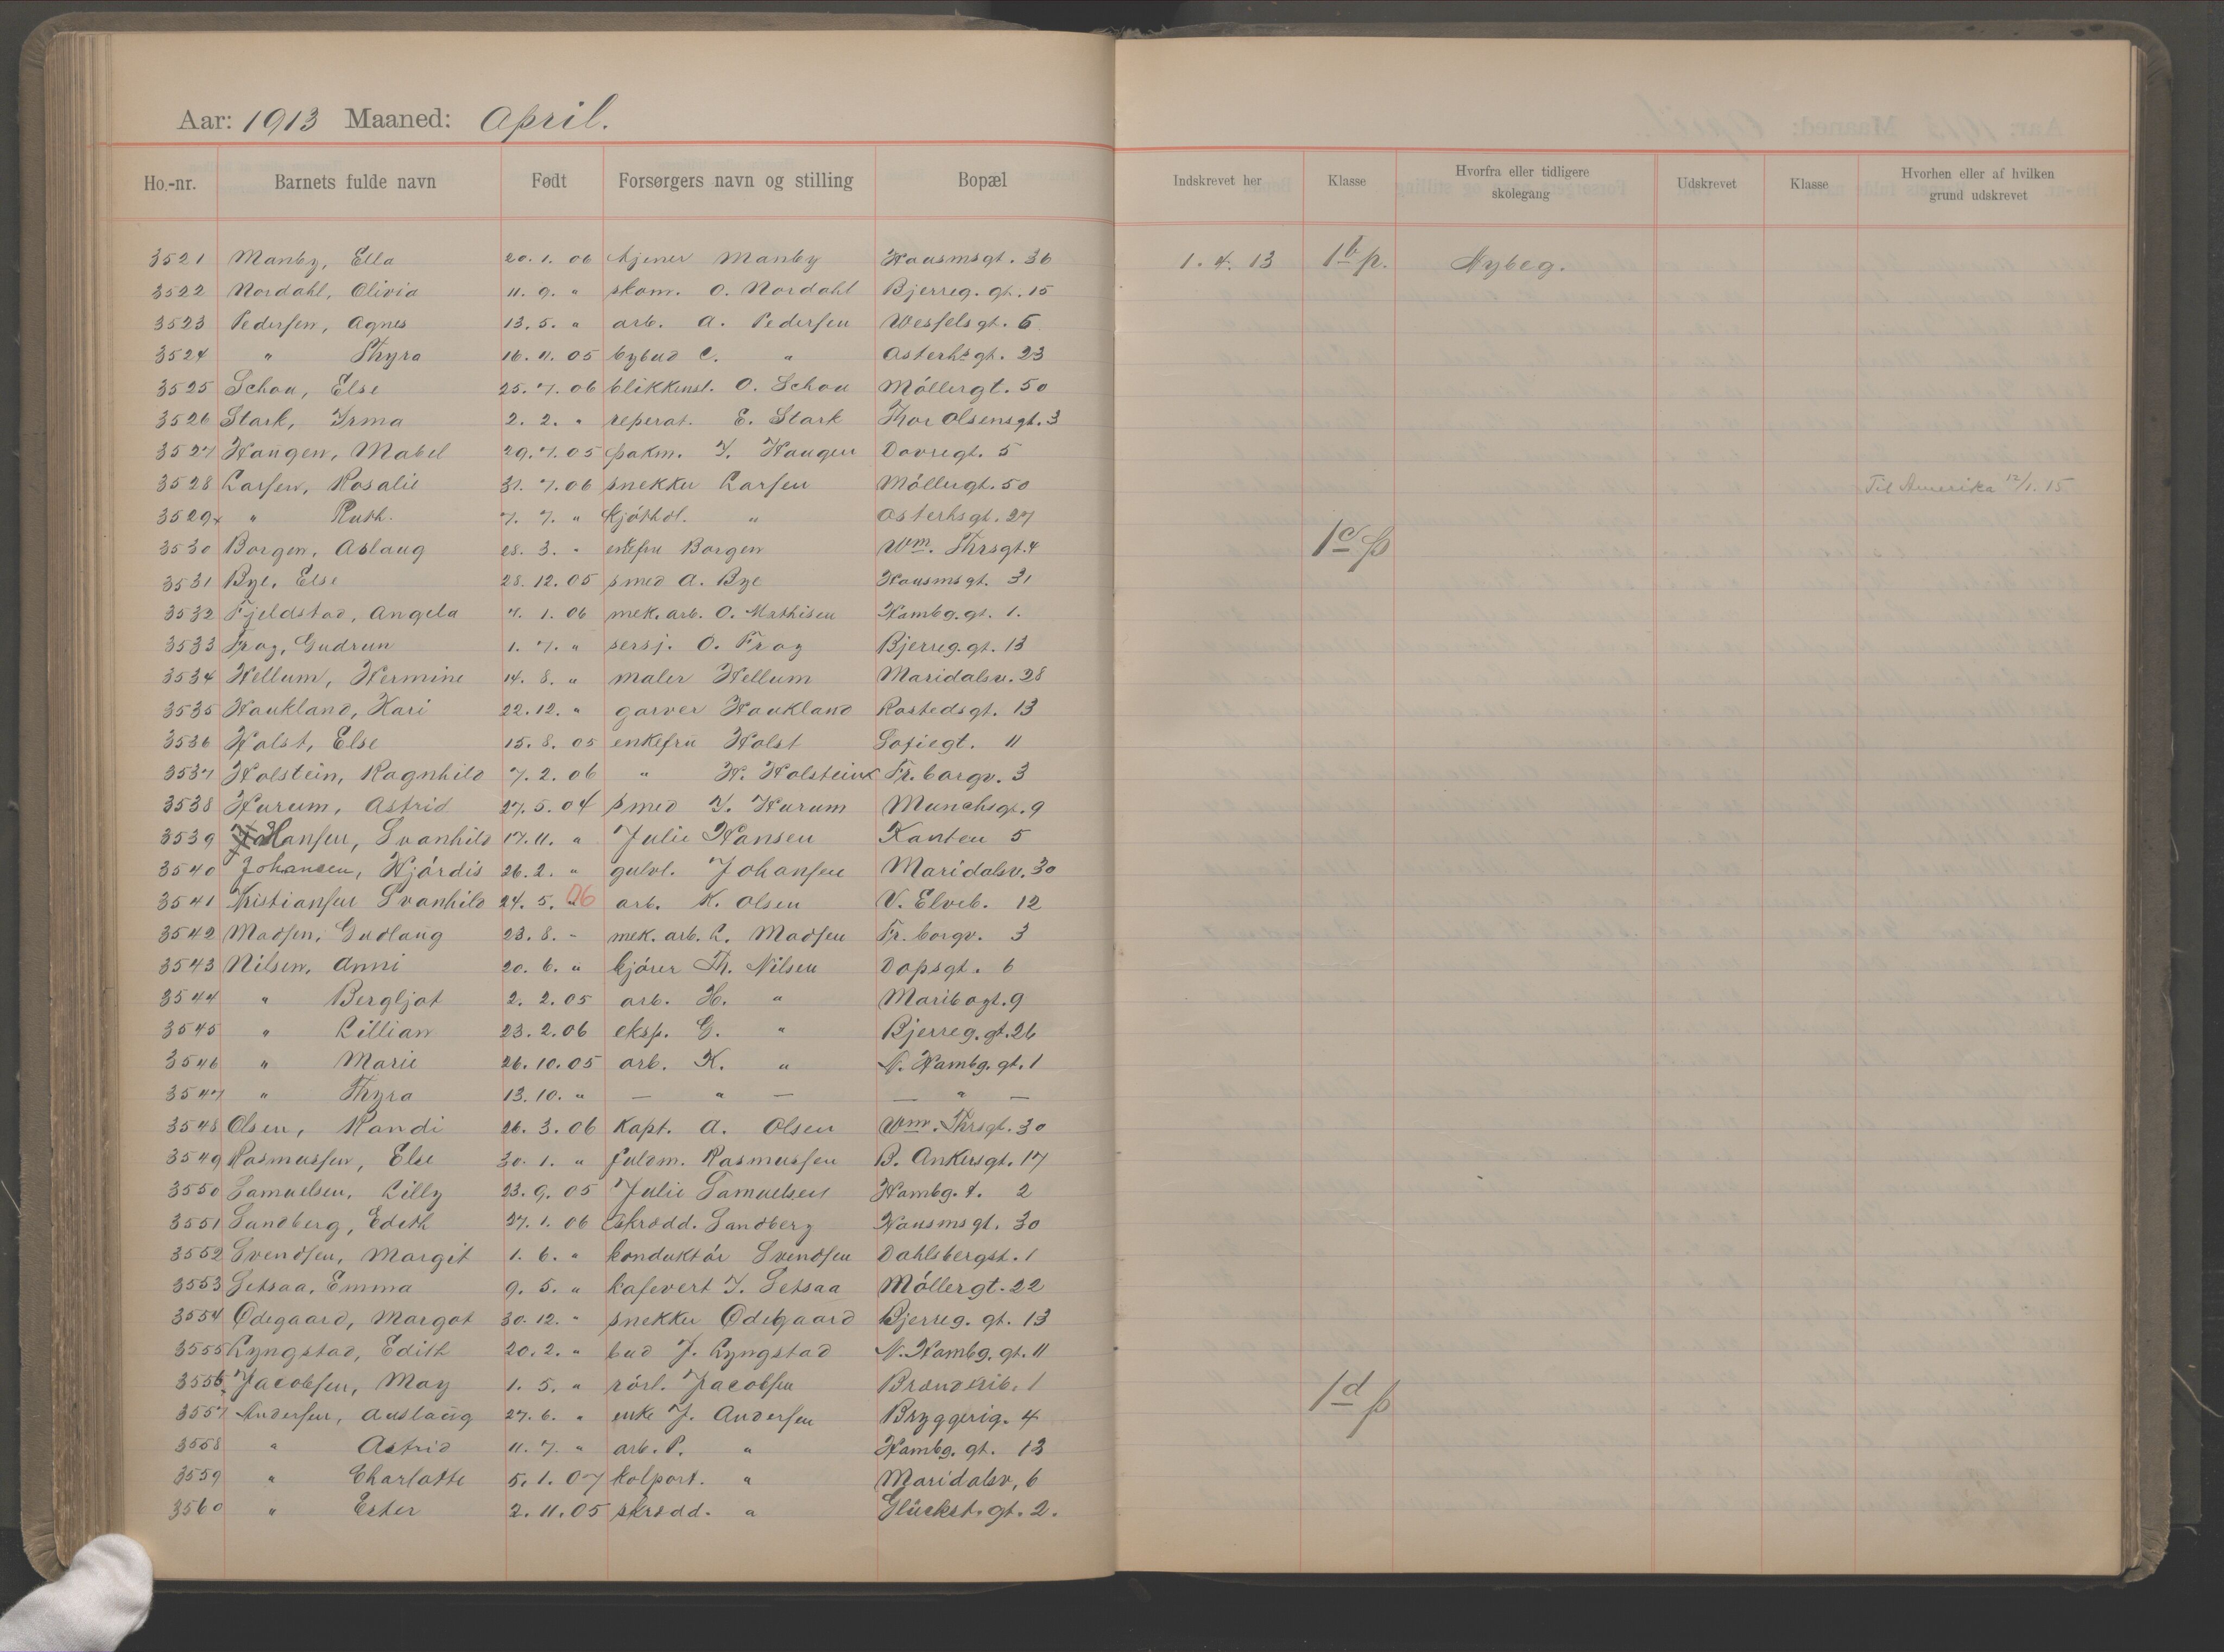 Aar: 1913 Maaned: April.
Ho.-nr. Barnets fulde navn Født Forsørgers navn og stilling Bopæl Indskrevet her Klasse Hvorfra eller tidligere skolegang Udskrevet Klasse Hvorhen eller af hvilken grund udskrevet
3521 Manby, Ella 20. 1. 06 kjener Manby Hausmsgt. 36 1. 4. 13 1b p. Nybeg.
3522 Nordahl, Olivia 11. 9. " skom. O. Nordahl Bjerreg. gt. 15
3523 Pedersen, Agnes 13. 5. " arb. A. Pedersen Wesselsgt. 6
3524 " Thyra 16. 11. 05 bybud C. " Osterhsgt. 23
3525 Schou, Else 25. 7. 06 blikkensl. O. Schou Möllergt. 50
3526 Stark, Irma 2. 2. " reperat. E. Stark Thor Olsensgt. 3
3527 Haugen, Mabel 29. 7. 05 pakm. I. Haugen Dovregt. 5
3528 Larsen, Rosalie 31. 7. 06 snekker Larsen Möllergt. 50 Til Amerika 12/1. 15
3529 x " Ruth. 7. 7. " kjöthdl. " Osterhsgt. 27
3530 Borgen, Aslaug 28. 3. " enkefru Borgen Wm. Thrsgt. 4 1c p
3531 Bye, Else 28. 12. 05 smed A. Bye Hausmsgt. 31
3532 Fjeldstad, Angela 7. 1. 06 mek. arb. O. Mathisen Hambg. gt. 1.
3533 Frog, Gudrun 1. 7. " sersj. O. Frog Bjerreg. gt. 13
3534 Hellum, Hermine 14. 8. " maler Hellum Maridalsv. 28
3535 Haukland, Kari 22. 12. " garver Haukland Rostedsgt. 13
3536 Holst, Else 15. 8. 05 enkefru Holst Sofiegt. 11
3537 Holstein, Ragnhild 7. 2. 06 " H. Holstein Fr. borgv. 3
3538 Hurum, Astrid 27. 5. 04 smed I. Hurum Munchsgt. 9
3539 Hansen, Svanhild 17. 11. " Julie Hansen Kanten 5
3540 Johansen, Hjördis 26. 2. " gulvl. Johansen Maridalsv. 30
3541 Kristiansen Svanhild 24. 5. 06 arb. K. Olsen V. Elveb. 12
3542 Madsen, Gudlaug 23. 8. - mek. arb. L. Madsen Fr. borgv. 3
3543 Nilsen, Anni 20. 6. " kjörer Th. Nilsen Dopsgt. 6
3544 " Bergljot 2. 2. 05 arb. H. " Maribogt. 9
3545 " Lillian 23. 2. 06 eksp. G. " Bjerreg. gt. 26
3546 " Marie 26. 10. 05 arb. K. " N. Hambg. gt. 1
3547 " Thyra 13. 10. " — " — — " —
3548 Olsen, Randi 26. 3. 06 kapt. A. Olsen Wm. Thrsgt. 30
3549 Rasmussen, Else 30. 1. " fuldm. Rasmussen B. Ankersgt. 17
3550 Samuelsen, Lilly 23. 9. 05 Julie Samuelsen Hambg. t. 2
3551 Sandberg, Edith 27. 1. 06 skrædd. Sandberg Hausmsgt. 30
3552 Svendsen, Margit 1. 6. " konduktör Svendsen Dahlsbergst. 1
3553 Setsaa, Emma 9. 5. " kafevert I. Setsaa Möllergt. 22
3554 Ödegaard, Margot 30. 12. " snekker Ödegaard Bjerreg. gt. 13
3555 Lyngstad, Edith 20. 2. " bud J. Lyngstad N. Hambg. gt. 11
3556 Jacobsen, May 1. 5. " rörl. Jacobsen Brændkrib. 1 1d p
3557 Andersen, Auslaug 27. 6. " enke J. Andersen Bryggerig. 4
3558 " Astrid 11. 7. " arb. P. " Hambg. gt. 13
3559 " Charlotte 5. 1. 07 kolport. " Maridalsv. 6
3560 " Ester 2. 11. 05 skrædd. " Glückst. gt. 2.